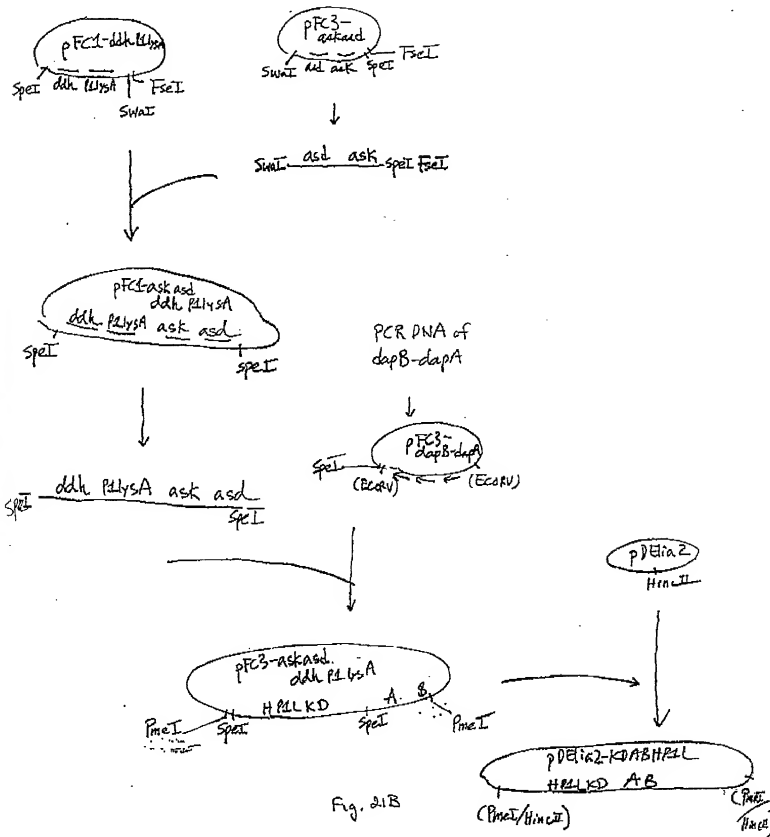 pFC1-ddhP1lysA
SpeI
ddh P1lysA
FseI
SwaI
pFC3-
askasd
SwaI
asd ask
SpeI
FseI
SwaI
asd ask
SpeI FseI
pFC1-askasd
ddh P1lysA
ddh P1lysA ask asd
SpeI
SpeI
PCR DNA of
dapB-dapA
pFC3-
dapB-dapA
SpeI
(EcoRV)
(EcoRV)
ddh P1lysA ask asd
SpeI
SpeI
pDElia2
HincII
pFC3-askasd
ddh P1lysA
HP1LKD
A B
PmeI
SpeI
SpeI
PmeI
pDElia2-KDABHP1L
HP1LKD AB
(PmeI/HincII)
(PmeI/
HincII
Fig. 21B